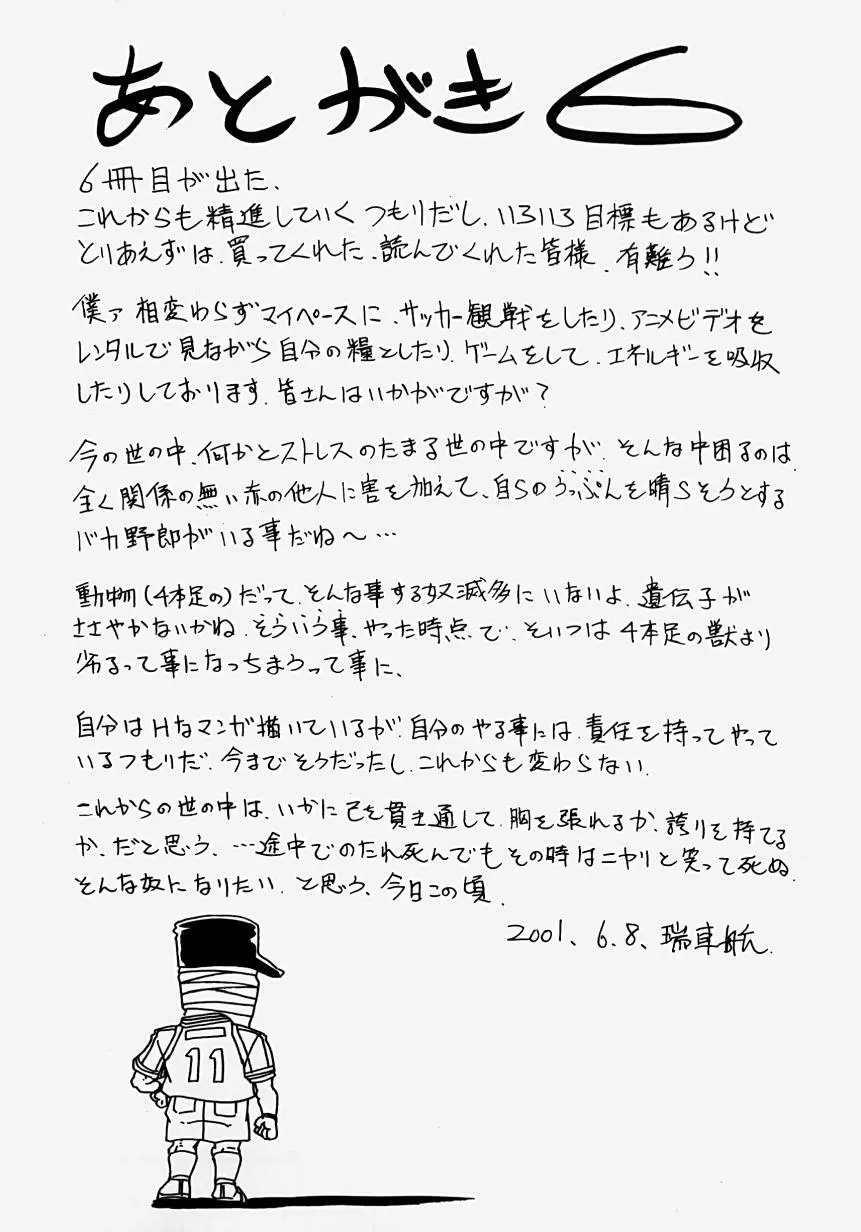 あとがき6
6冊目が出た、
これからも精進していくつもりだし、いろいろ目標もあるけど
とりあえずは、買ってくれた、読んでくれた皆様、有難う!!
僕ァ相変わらずマイペースに、サッカー観戦をしたり、アニメビデオを
レンタルで見ながら自分の糧としたり、ゲームをして、エネルギーを吸収
したりしております、皆さんはいかがですか?
今の世の中、何かとストレスのたまる世の中ですが、そんな中困るのは、
全く関係の無い赤の他人に害を加えて、自らのうっぷんを晴らそうとする
バカ野郎がいる事だね〜…
動物(4本足の)だって、そんな事する奴滅多にいないよ、遺伝子が
ささやかないかね、そういう事、やった時点で、そいつは4本足の獣より
劣るって事になっちまうって事に、
自分はHなマンガ描いているが、自分のやる事には、責任を持ってやって
いるつもりだ、今までそうだったし、これからも変わらない、
これからの世の中は、いかに己を貫き通して、胸を張れるか、誇りを持てる
か、だと思う、…途中でのたれ死んでもその時はニヤリと笑って死ぬ、
そんな奴になりたい、と思う、今日この頃、
2001、6.8、瑞車航、
11